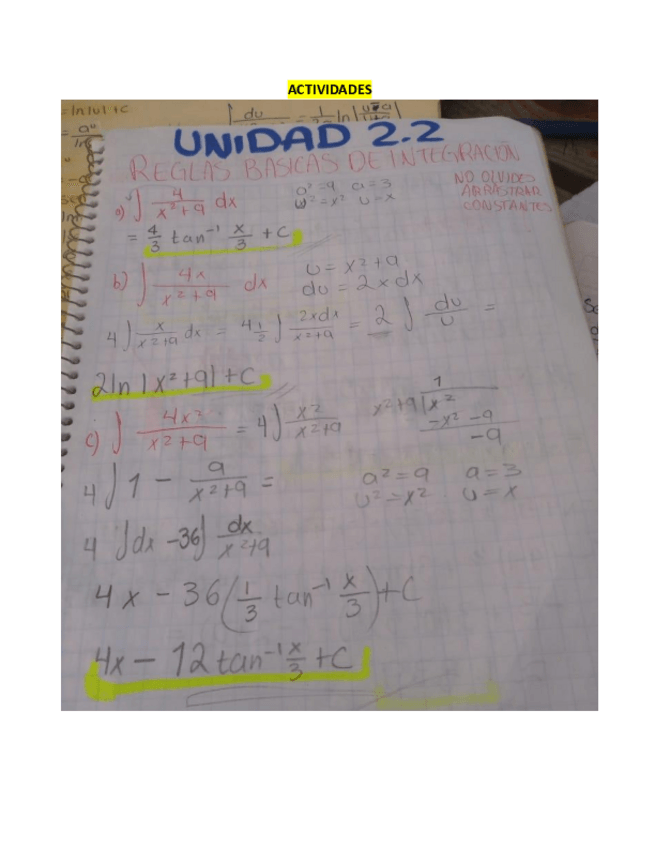 ACTIVIDADES
= ln|u| + c
∫ du
UNIDAD 2.2
REGLAS BASICAS DE INTEGRACIÓN
NO OLVIDES
ARRASTRAR
CONSTANTES
a) ∫ 4/(x²+9) dx   a²=9   a=3
u²=x²   u=x
= 4/3 tan⁻¹ x/3 + C
b) ∫ 4x/(x²+9) dx   u = x²+9
du = 2x dx
4∫ x/(x²+9) dx = 4 1/2 ∫ 2xdx/(x²+9) = 2 ∫ du/u =
2ln |x²+9| + C
c) ∫ 4x²/(x²+9) = 4∫ x²/(x²+9)   1
x²+9 | x²
-x² -9
-9
4∫ 1 - 9/(x²+9) =   a²=9   a=3
u²=x²   u=x
4 ∫dx -36∫ dx/(x²+9)
4x - 36(1/3 tan⁻¹ x/3) + C
4x - 12 tan⁻¹ x/3 + C